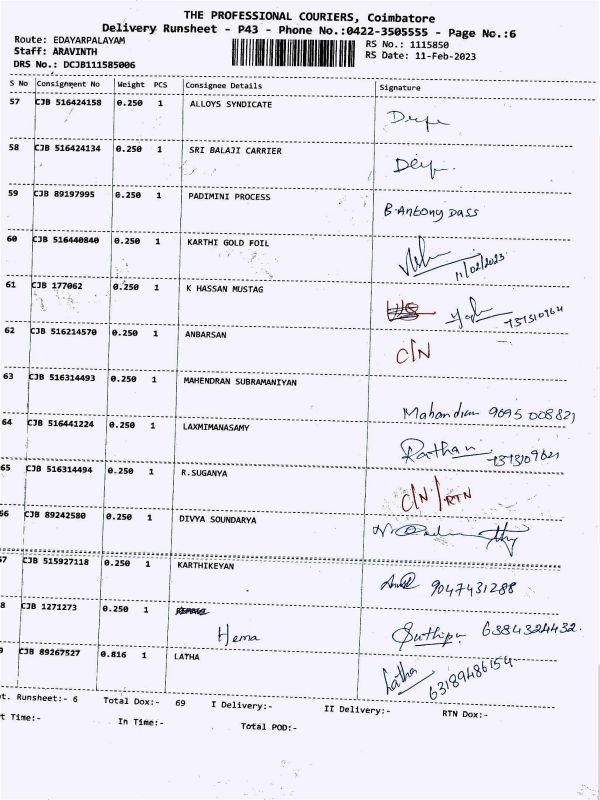 THE PROFESSIONAL COURIERS, Coimbatore
Delivery Runsheet - P43 - Phone No.:0422-3505555 - Page No.:6
Route: EDAYARPALAYAM RS No.: 1115850
Staff: ARAVINTH RS Date: 11-Feb-2023
DRS No.: DCJB111585006
S No Consignment No Weight PCS Consignee Details Signature
57 CJB 516424158 0.250 1 ALLOYS SYNDICATE
58 CJB 516424134 0.250 1 SRI BALAJI CARRIER
59 CJB 89197995 0.250 1 PADIMINI PROCESS B.Antony Dass
60 CJB 516440840 0.250 1 KARTHI GOLD FOIL 11/02/2023
61 CJB 177062 0.250 1 K HASSAN MUSTAG
62 CJB 516214570 0.250 1 ANBARSAN C/N
63 CJB 516314493 0.250 1 MAHENDRAN SUBRAMANIYAN Mahandian 9095 008821
64 CJB 516441224 0.250 1 LAXMIMANASAMY Rathan
65 CJB 516314494 0.250 1 R.SUGANYA C/N/RTN
66 CJB 89242580 0.250 1 DIVYA SOUNDARYA
67 CJB 515927118 0.250 1 KARTHIKEYAN 9047431288
8 CJB 1271273 0.250 1 Hema 6384324432.
9 CJB 89267527 0.816 1 LATHA Latha 63189486154
t. Runsheet:- 6 Total Dox:- 69 I Delivery:- II Delivery:- RTN Dox:-
t Time:- In Time:- Total POD:-